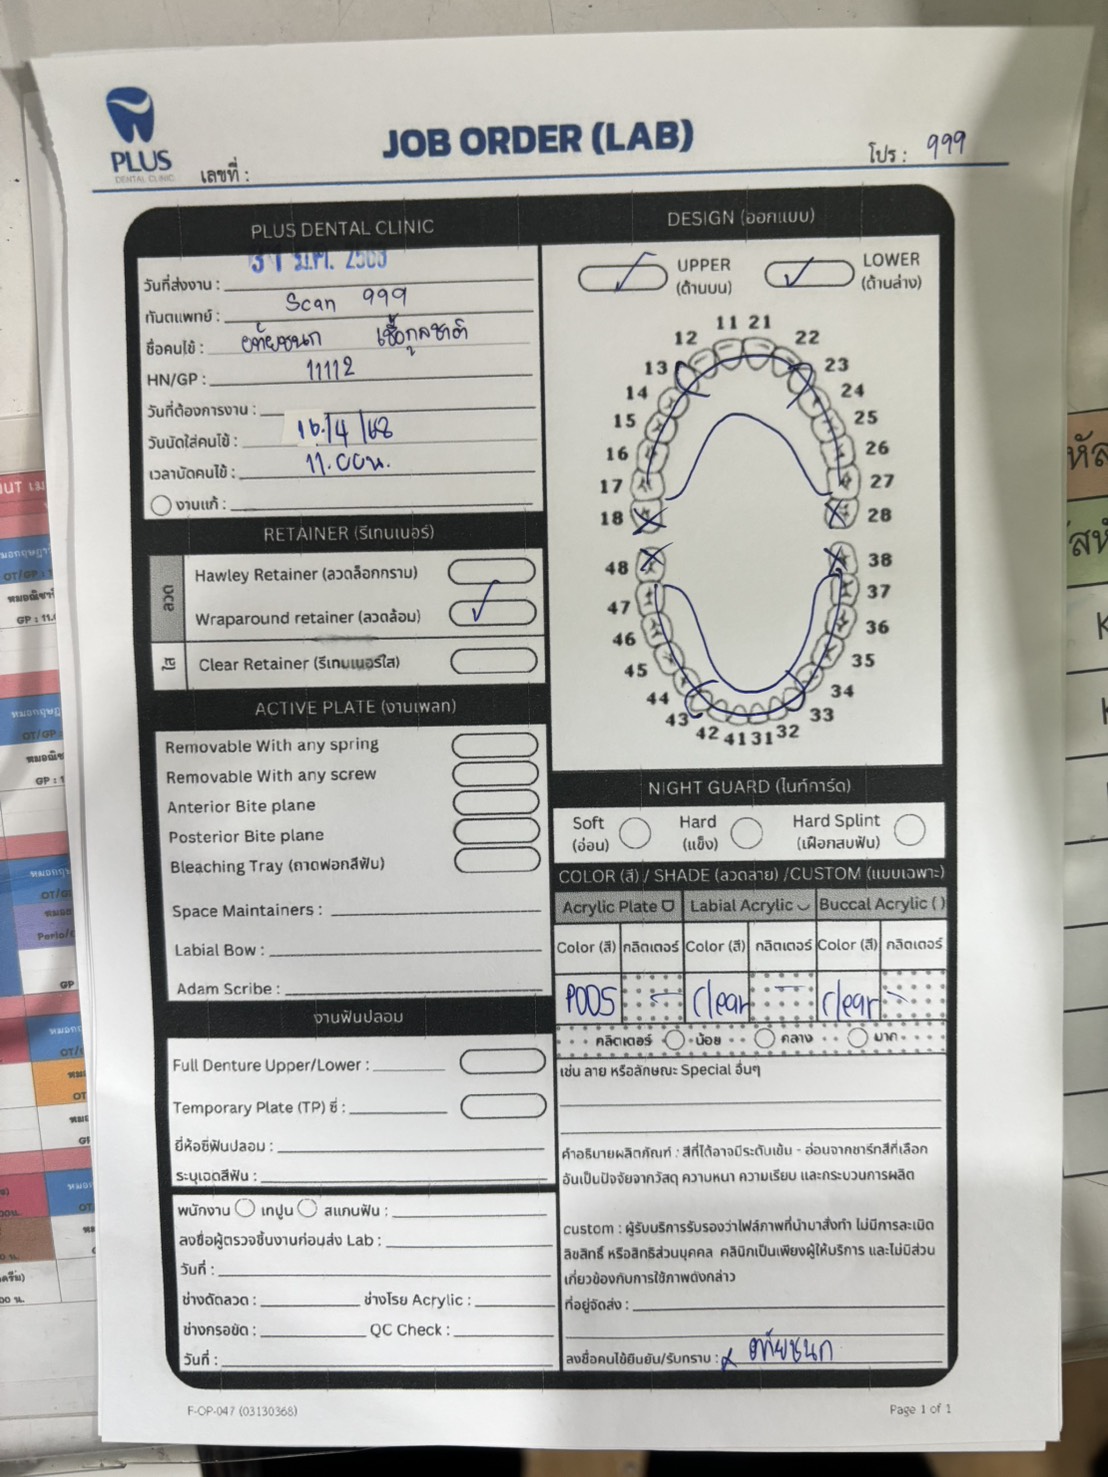 PLUS
DENTAL CLINIC
JOB ORDER (LAB)
เลขที่ :
โปร : 999
PLUS DENTAL CLINIC
วันที่ส่งงาน :
ทันตแพทย์ : Scan 999
ชื่อคนไข้ : เชื้อกูลชาติ
HN/GP : 11112
วันที่ต้องการงาน :
วันนัดใส่คนไข้ : 16/4/68
เวลานัดคนไข้ : 11.00น.
งานแก้ :
RETAINER (รีเทนเนอร์)
ลวด
Hawley Retainer (ลวดล็อกกราม)
Wraparound retainer (ลวดล้อม)
ใส
Clear Retainer (รีเทนเนอร์ใส)
ACTIVE PLATE (งานเพลท)
Removable With any spring
Removable With any screw
Anterior Bite plane
Posterior Bite plane
Bleaching Tray (ถาดฟอกสีฟัน)
Space Maintainers :
Labial Bow :
Adam Scribe :
งานฟันปลอม
Full Denture Upper/Lower :
Temporary Plate (TP) ซี่ :
ยี่ห้อซี่ฟันปลอม :
ระบุเฉดสีฟัน :
พนักงาน เทปูน สแกนฟัน :
ลงชื่อผู้ตรวจชิ้นงานก่อนส่ง Lab :
วันที่ :
ช่างดัดลวด : ช่างโรย Acrylic :
ช่างกรอขัด : QC Check :
วันที่ :
DESIGN (ออกแบบ)
UPPER
(ด้านบน)
LOWER
(ด้านล่าง)
11 21
12 22
13 23
14 24
15 25
16 26
17 27
18 28
48 38
47 37
46 36
45 35
44 34
43 33
42 41 31 32
NIGHT GUARD (ไนท์การ์ด)
Soft
(อ่อน)
Hard
(แข็ง)
Hard Splint
(เฝือกสบฟัน)
COLOR (สี) / SHADE (ลวดลาย) /CUSTOM (แบบเฉพาะ)
Acrylic Plate Labial Acrylic Buccal Acrylic ( )
Color (สี) กลิตเตอร์ Color (สี) กลิตเตอร์ Color (สี) กลิตเตอร์
P005 - Clear - Clear -
กลิตเตอร์ น้อย กลาง มาก
เช่น ลาย หรือลักษณะ Special อื่นๆ
คำอธิบายผลิตภัณฑ์ : สีที่ได้อาจมีระดับเข้ม - อ่อนจากชาร์ทสีที่เลือก
อันเป็นปัจจัยจากวัสดุ ความหนา ความเรียบ และกระบวนการผลิต
custom : ผู้รับบริการรับรองว่าไฟล์ภาพที่นำมาสั่งทำ ไม่มีการละเมิด
ลิขสิทธิ์ หรือสิทธิส่วนบุคคล คลินิกเป็นเพียงผู้ให้บริการ และไม่มีส่วน
เกี่ยวข้องกับการใช้ภาพดังกล่าว
ที่อยู่จัดส่ง :
ลงชื่อคนไข้ยืนยัน/รับทราบ :
F-OP-047 (03130368)
Page 1 of 1